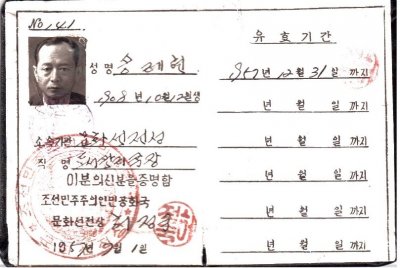 No. 141.
성명 송
1908년 10월 12일생
소속기관 문화선전성
직 명
이분의신분을증명함
조선민주주의인민공화국
문화선전상 허정숙
1957년 월 1일
유 효 기 간
1957년 12월 31일 까지
년 월 일 까지
년 월 일 까지
년 월 일 까지
년 월 일 까지
년 월 일 까지